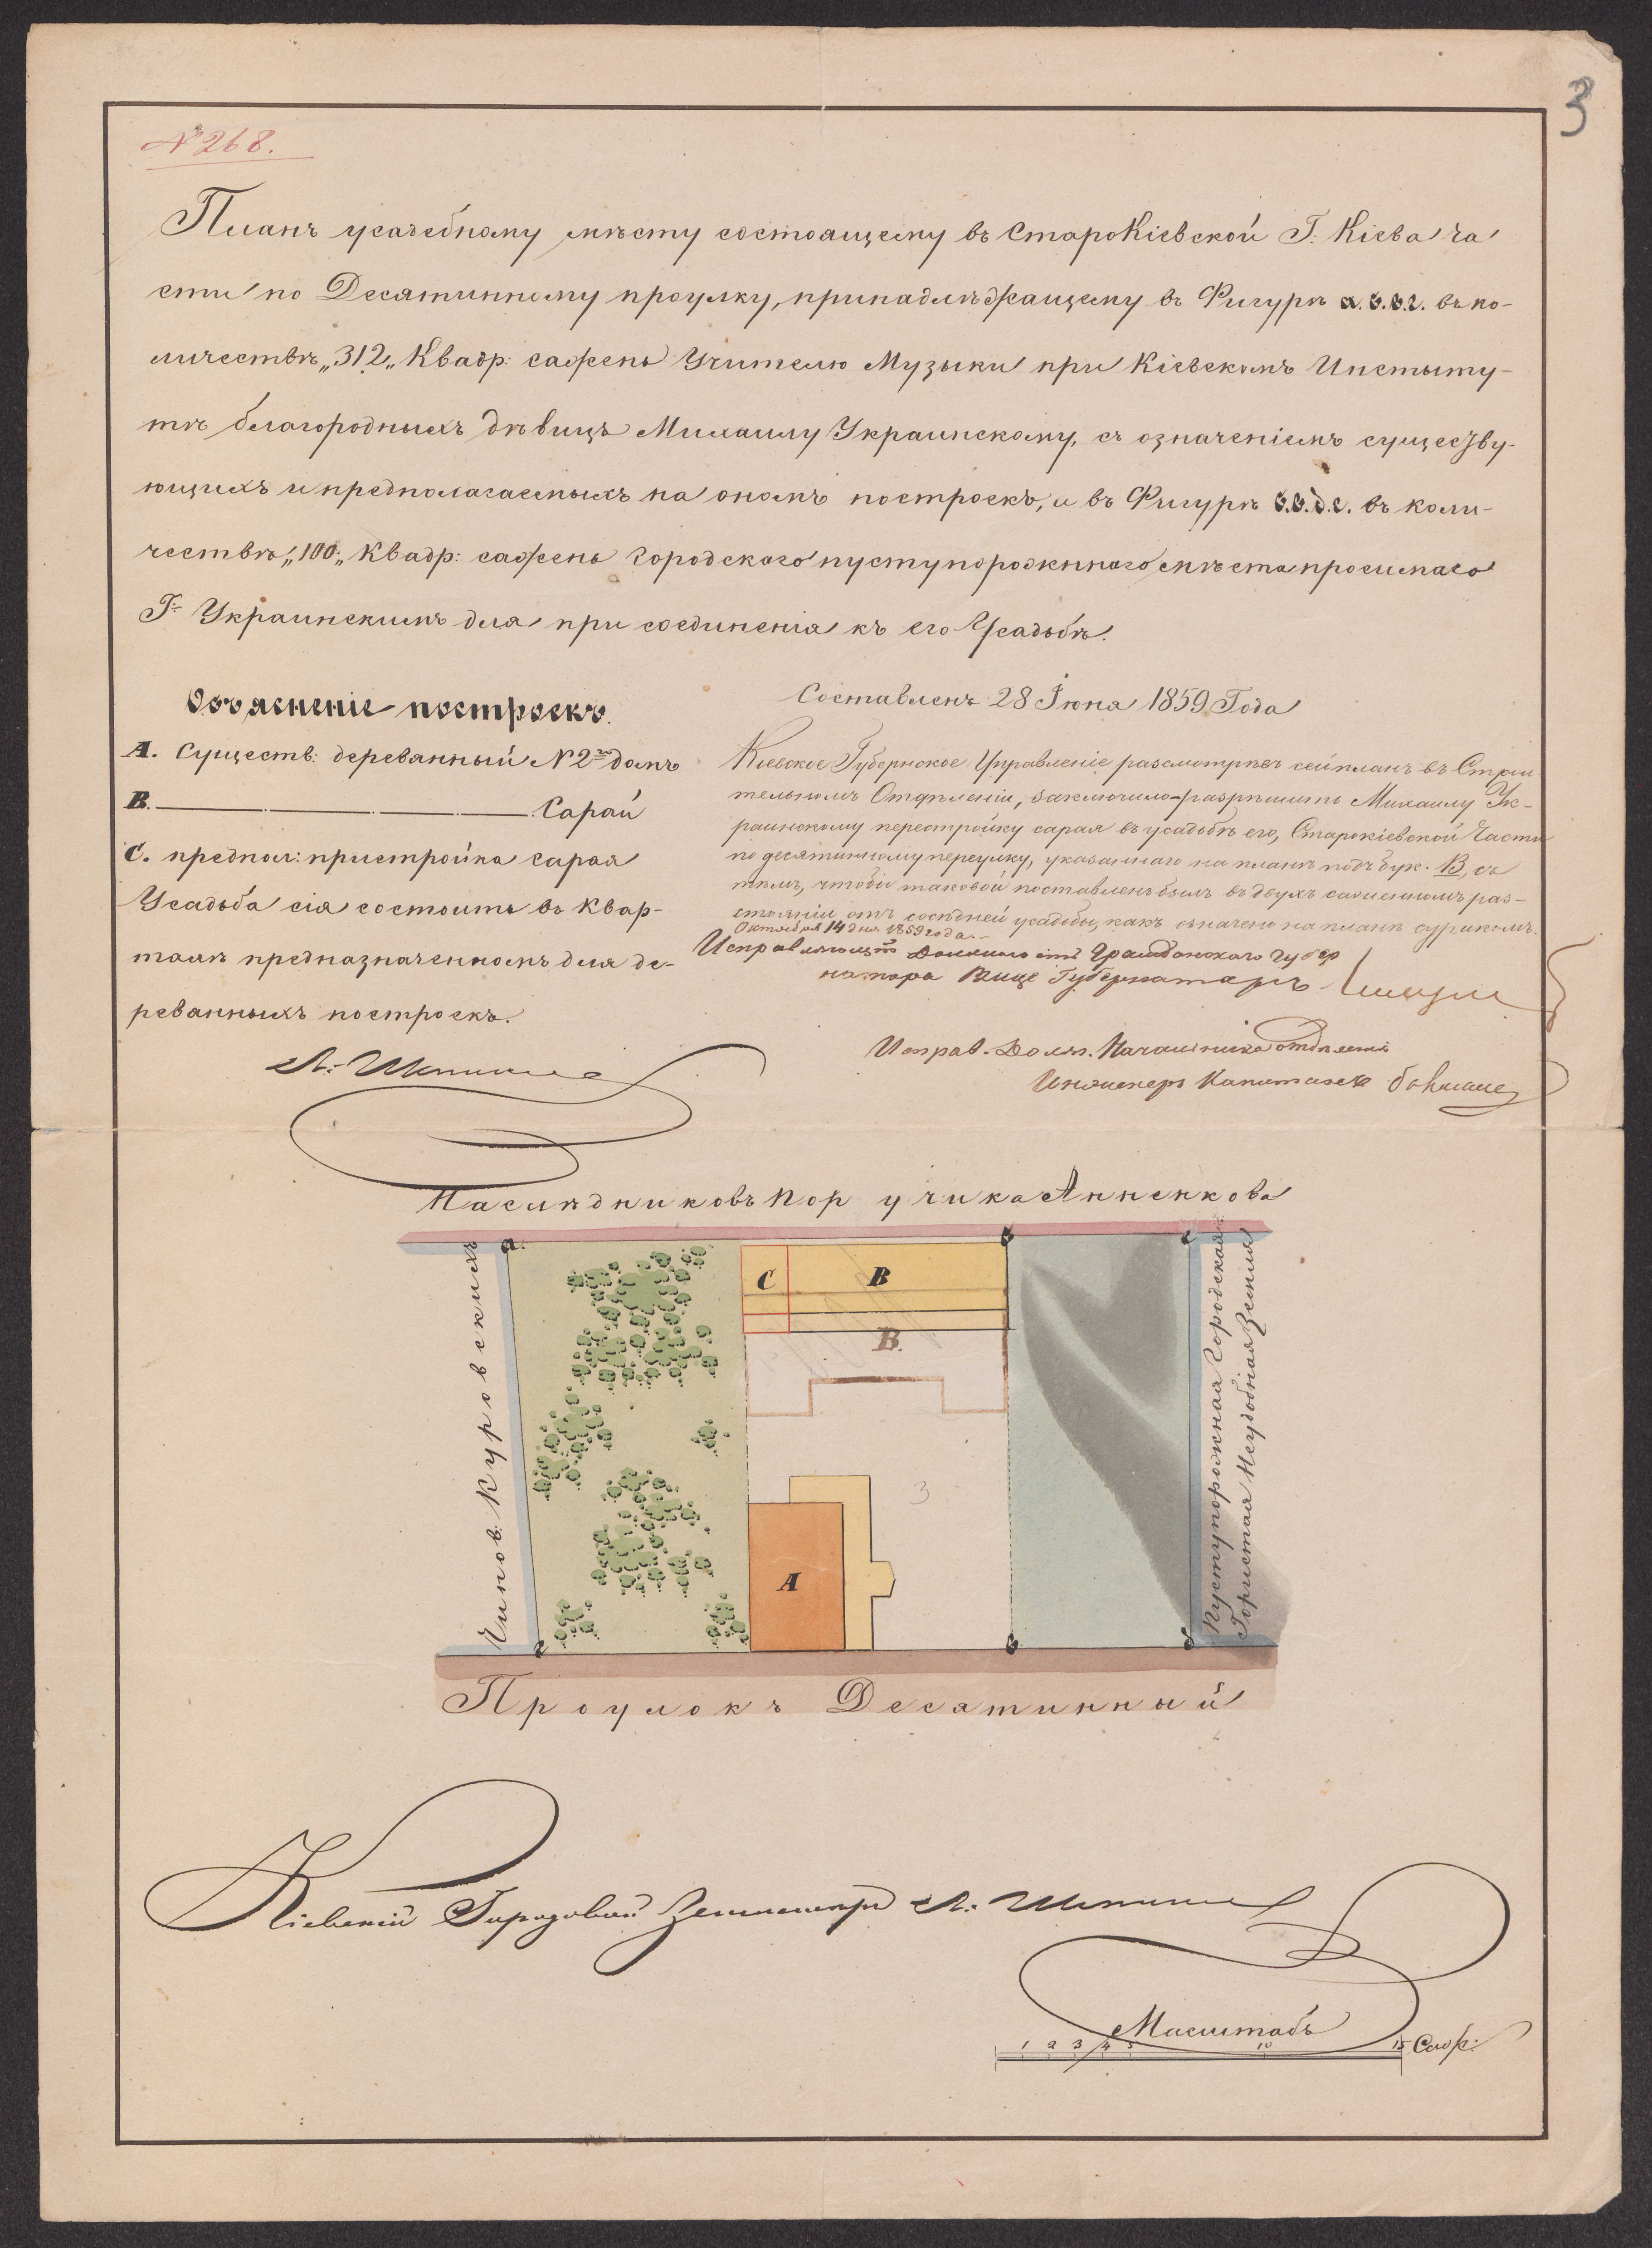 3
№ 268.
Планъ усадебному мѣсту состоящему въ СтароКіевской Г: Кіева ча
сти по Десятинному проулку, принадлѣжащему въ Фигурѣ а.б.в.г. въ ко-
личествѣ „312„ Квадр: сажень Учителю Музыки при Кіевскомъ Инстыту-
тѣ благородныхъ дѣвицъ Михаилу Украинскому, съ означеніемъ существу-
ющихъ и предполагаемыхъ на ономъ построекъ, и въ Фигурѣ б.в.д.е. въ коли-
чествѣ „100„ Квадр: сажень Городскаго пуступорожнного мѣста просимаго
Г= Украинскимъ для при соединенія къ его Усадьбѣ.
Объясненіе построекъ.
A. Существ: деревянный № 2го домъ
B. Сарай
C. предпол: пристройка сарая
Усадьба сія состоитъ въ Квар-
талѣ предназначенномъ для де-
ревянныхъ построекъ.
Составленъ 28 Іюня 1859 Года
Кіевское Губернское Управленіе разсмотрѣвъ сей планъ въ Строи
тельномъ Отдѣленіи, заключило-разрѣшить Михаилу Ук-
раинскому перестройку сарая въ усадьбѣ его, Старокіевской Части
по десятинному переулку, указаннаго на планѣ подъ бук. В, съ
тѣмъ, чтобы таковой поставленъ былъ въ двухъ саженномъ раз-
стояніи отъ сосѣдней усадьбы, какъ означено на планѣ сурикомъ.
Октября 14 дня 1859 года.
Исправляющій Должность Гражданскаго Губер
натора Вице Губернаторъ
Исправ. Долж. Начальника отдѣленія
Инженеръ Капитанъ
Наслѣдниковъ Поручика Анненкова
Чинов. Куровскихъ
а.
б
е
C
B
B.
3
A
г
в
д
Пуступорожная Городская
Гористая Неудобная Земля
Проулокъ Десятинный
Кіевскій Городовой Землемѣръ
Масштабъ
1 2 3 4 5 10 15 Саж: